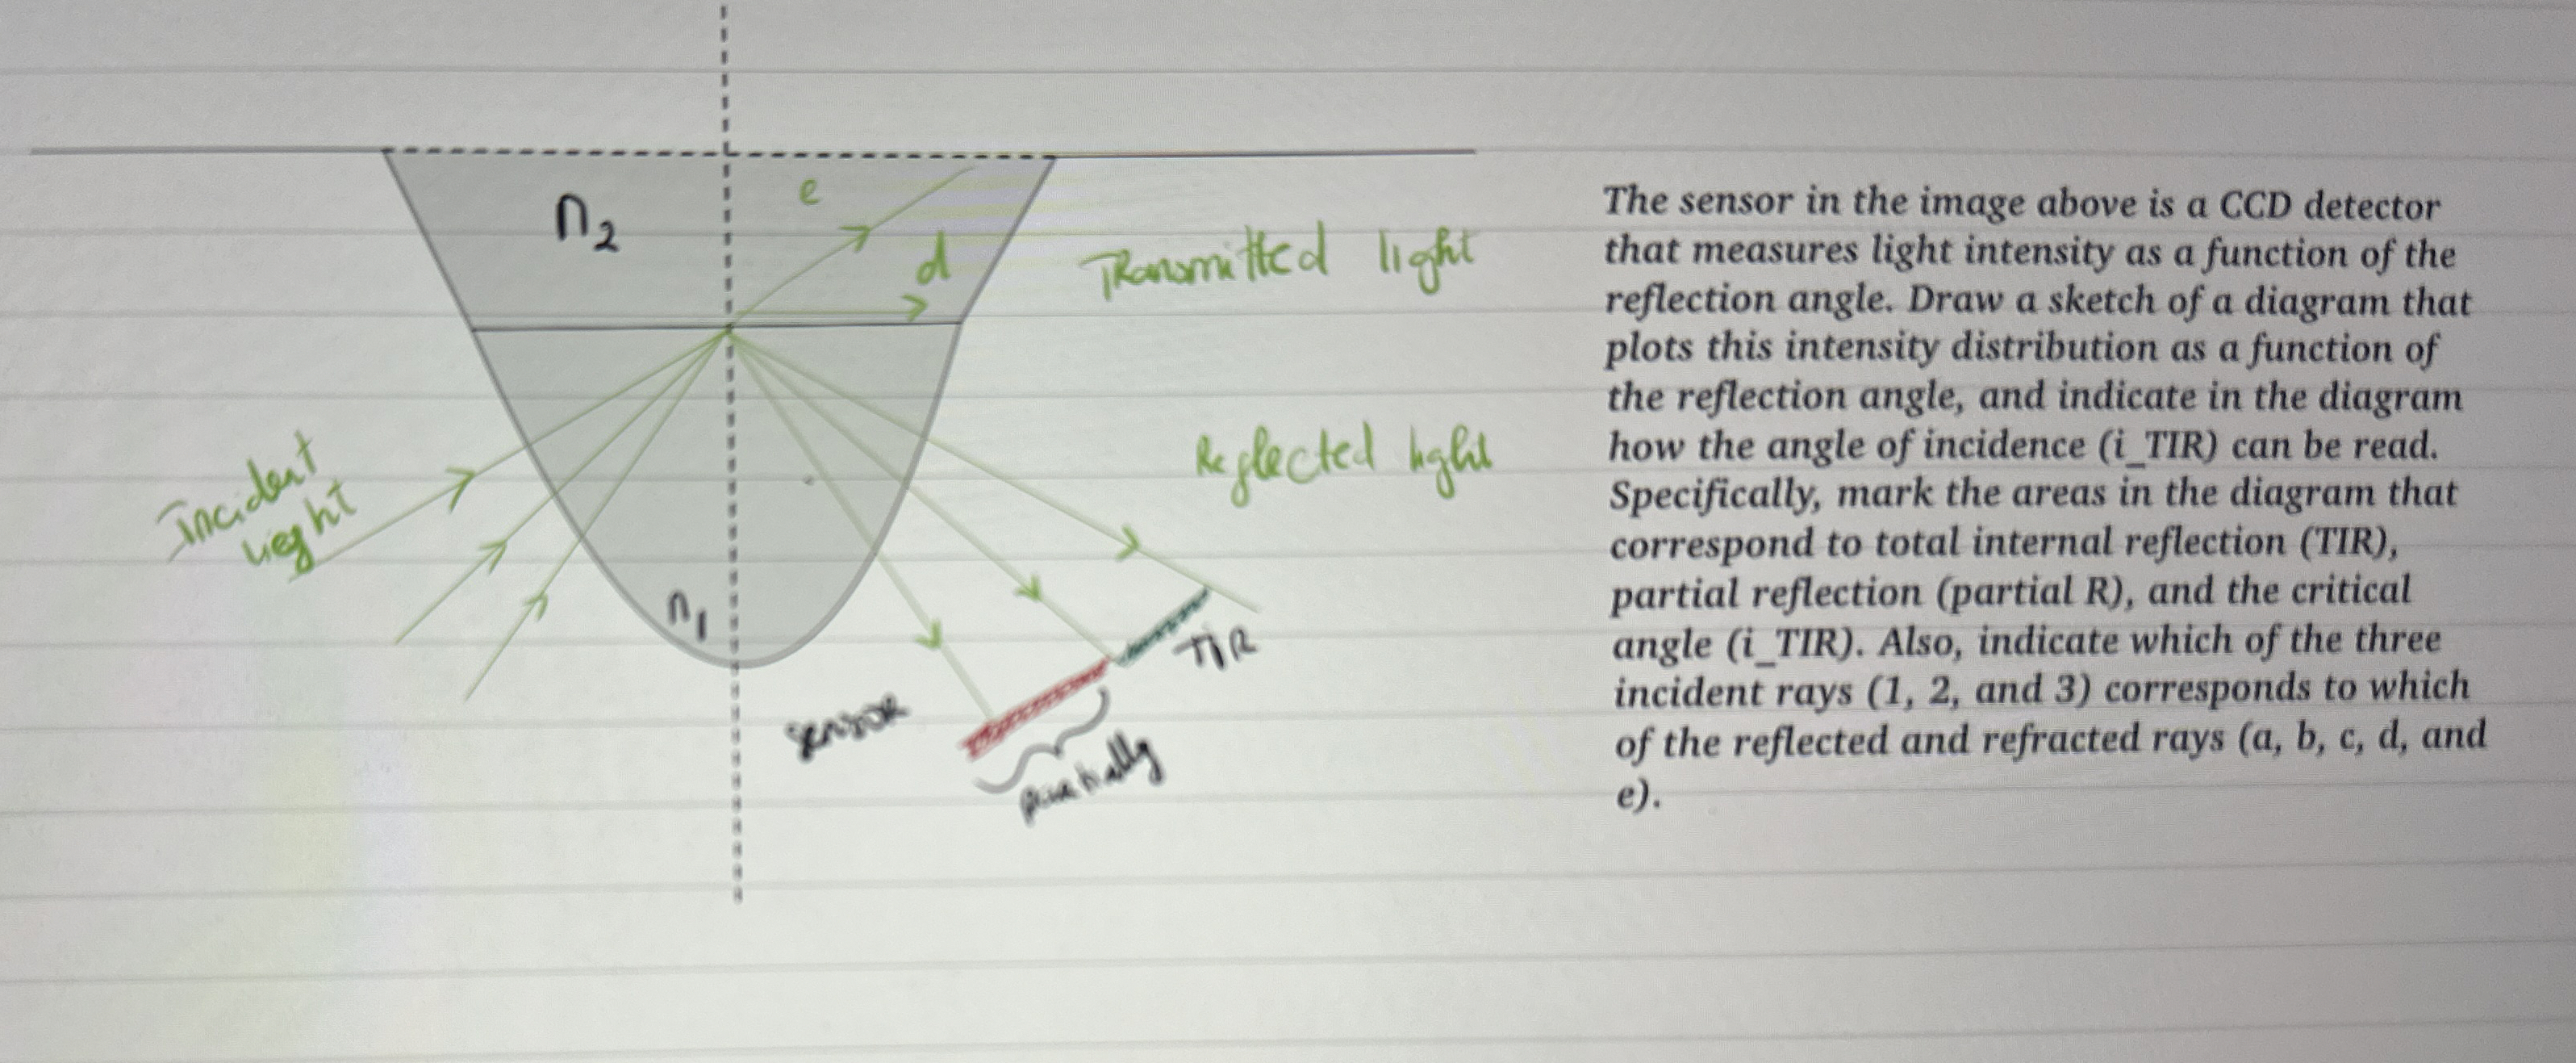 n₂
e
d
Transmitted light
Reglected light
Incident
light
n₁
TIR
sensor
partially
The sensor in the image above is a CCD detector
that measures light intensity as a function of the
reflection angle. Draw a sketch of a diagram that
plots this intensity distribution as a function of
the reflection angle, and indicate in the diagram
how the angle of incidence (i_TIR) can be read.
Specifically, mark the areas in the diagram that
correspond to total internal reflection (TIR),
partial reflection (partial R), and the critical
angle (i_TIR). Also, indicate which of the three
incident rays (1, 2, and 3) corresponds to which
of the reflected and refracted rays (a, b, c, d, and
e).